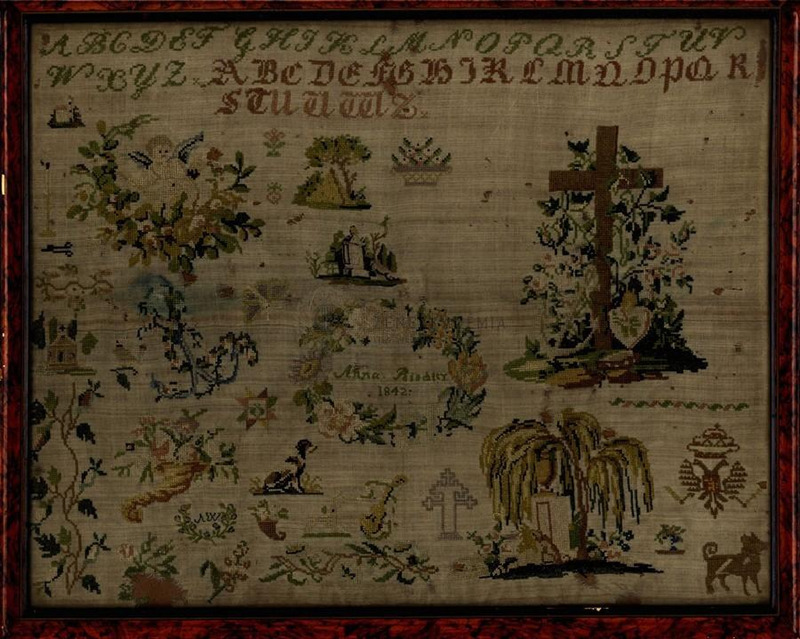 ABCDEF GHIJKLMNOPQRSTUV
WXYZ. ABCDEFGHIKLMNOPQR
STUUWZ.
Anna
1842.